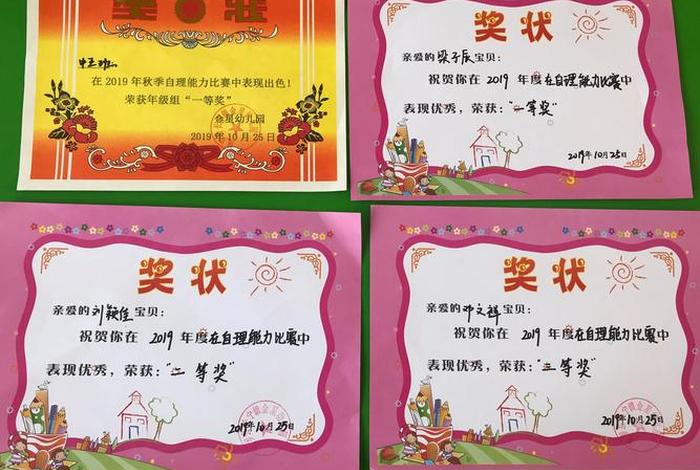 奖状
中五班:
在2019年秋季自理能力比赛中表现出色！
荣获年级组“一等奖”
金星幼儿园
2019年10月25日
奖状
亲爱的梁子辰宝贝：
祝贺你在 2019 年度在自理能力比赛中
表现优秀，荣获：“一等奖”
2019年10月25日
奖状
亲爱的刘颖佳宝贝：
祝贺你在 2019 年度在自理能力比赛中
表现优秀，荣获：“二等奖”
2019年10月25日
奖状
亲爱的邓文祥宝贝：
祝贺你在 2019 年度在自理能力比赛中
表现优秀，荣获：“三等奖”
2019年10月25日